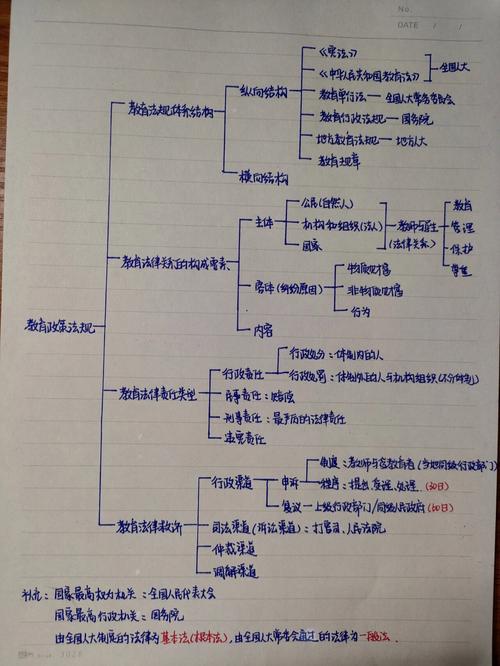 No.
DATE / /
教育政策法规
教育法规体系结构
纵向结构
《宪法》
《中华人民共和国教育法》
全国人大
教育单行法 — 全国人大常务委员会
教育行政法规 — 国务院
地方教育法规 — 地方人大
教育规章
横向结构
教育法律关系的构成要素
主体
公民(自然人)
机构和组织(法人)
国家
教师与学生
(法律关系)
教育
管理
保护
尊重
客体(纠纷原因)
物质财富
非物质财富
行为
内容
教育法律责任类型
行政责任
行政处分：体制内的人
行政处罚：体制外的人与机构组织(不分体制)
民事责任：赔偿
刑事责任：最严厉的法律责任
违宪责任
教育法律救济
行政渠道
申诉
制度：教师与受教育者(当地同级行政部门)
程序：提出、受理、处理 (30日)
复议 — 上级行政部门/同级人民政府 (60日)
司法渠道(诉讼渠道)：打官司、人民法院
仲裁渠道
调解渠道
补充：国家最高权力机关：全国人民代表大会
国家最高行政机关：国务院
由全国人大制定的法律为基本法(根本法)，由全国人大常委会通过的法律为一般法．